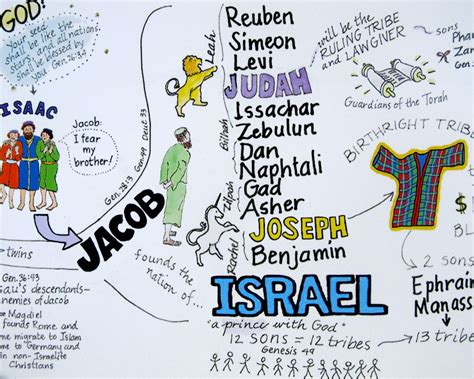 GOD!
Your seed
shall be like the
stars, and all nations
shall be blessed by
you. Gen.
ISAAC
Jacob:
I fear
my brother!
twins
Gen. 36:43
Esau's descendants—
enemies of Jacob
Magdiel
founds Rome and
some migrate to Islam
come to Germany and
in non-Israelite
Christians
JACOB
Gen. 49
Deut. 33
founds the
nation of...
Leah
Bilhah
Zilpah
Rachel
Reuben
Simeon
Levi
JUDAH
Issachar
Zebulun
Dan
Naphtali
Gad
Asher
JOSEPH
Benjamin
ISRAEL
"a prince with God"
12 sons = 12 tribes
Genesis 49
13 tribes
will be the
RULING TRIBE
and LAWGIVER
sons
Guardians of the Torah
BIRTHRIGHT TRIB
$
2 sons
Ephrain
Manass